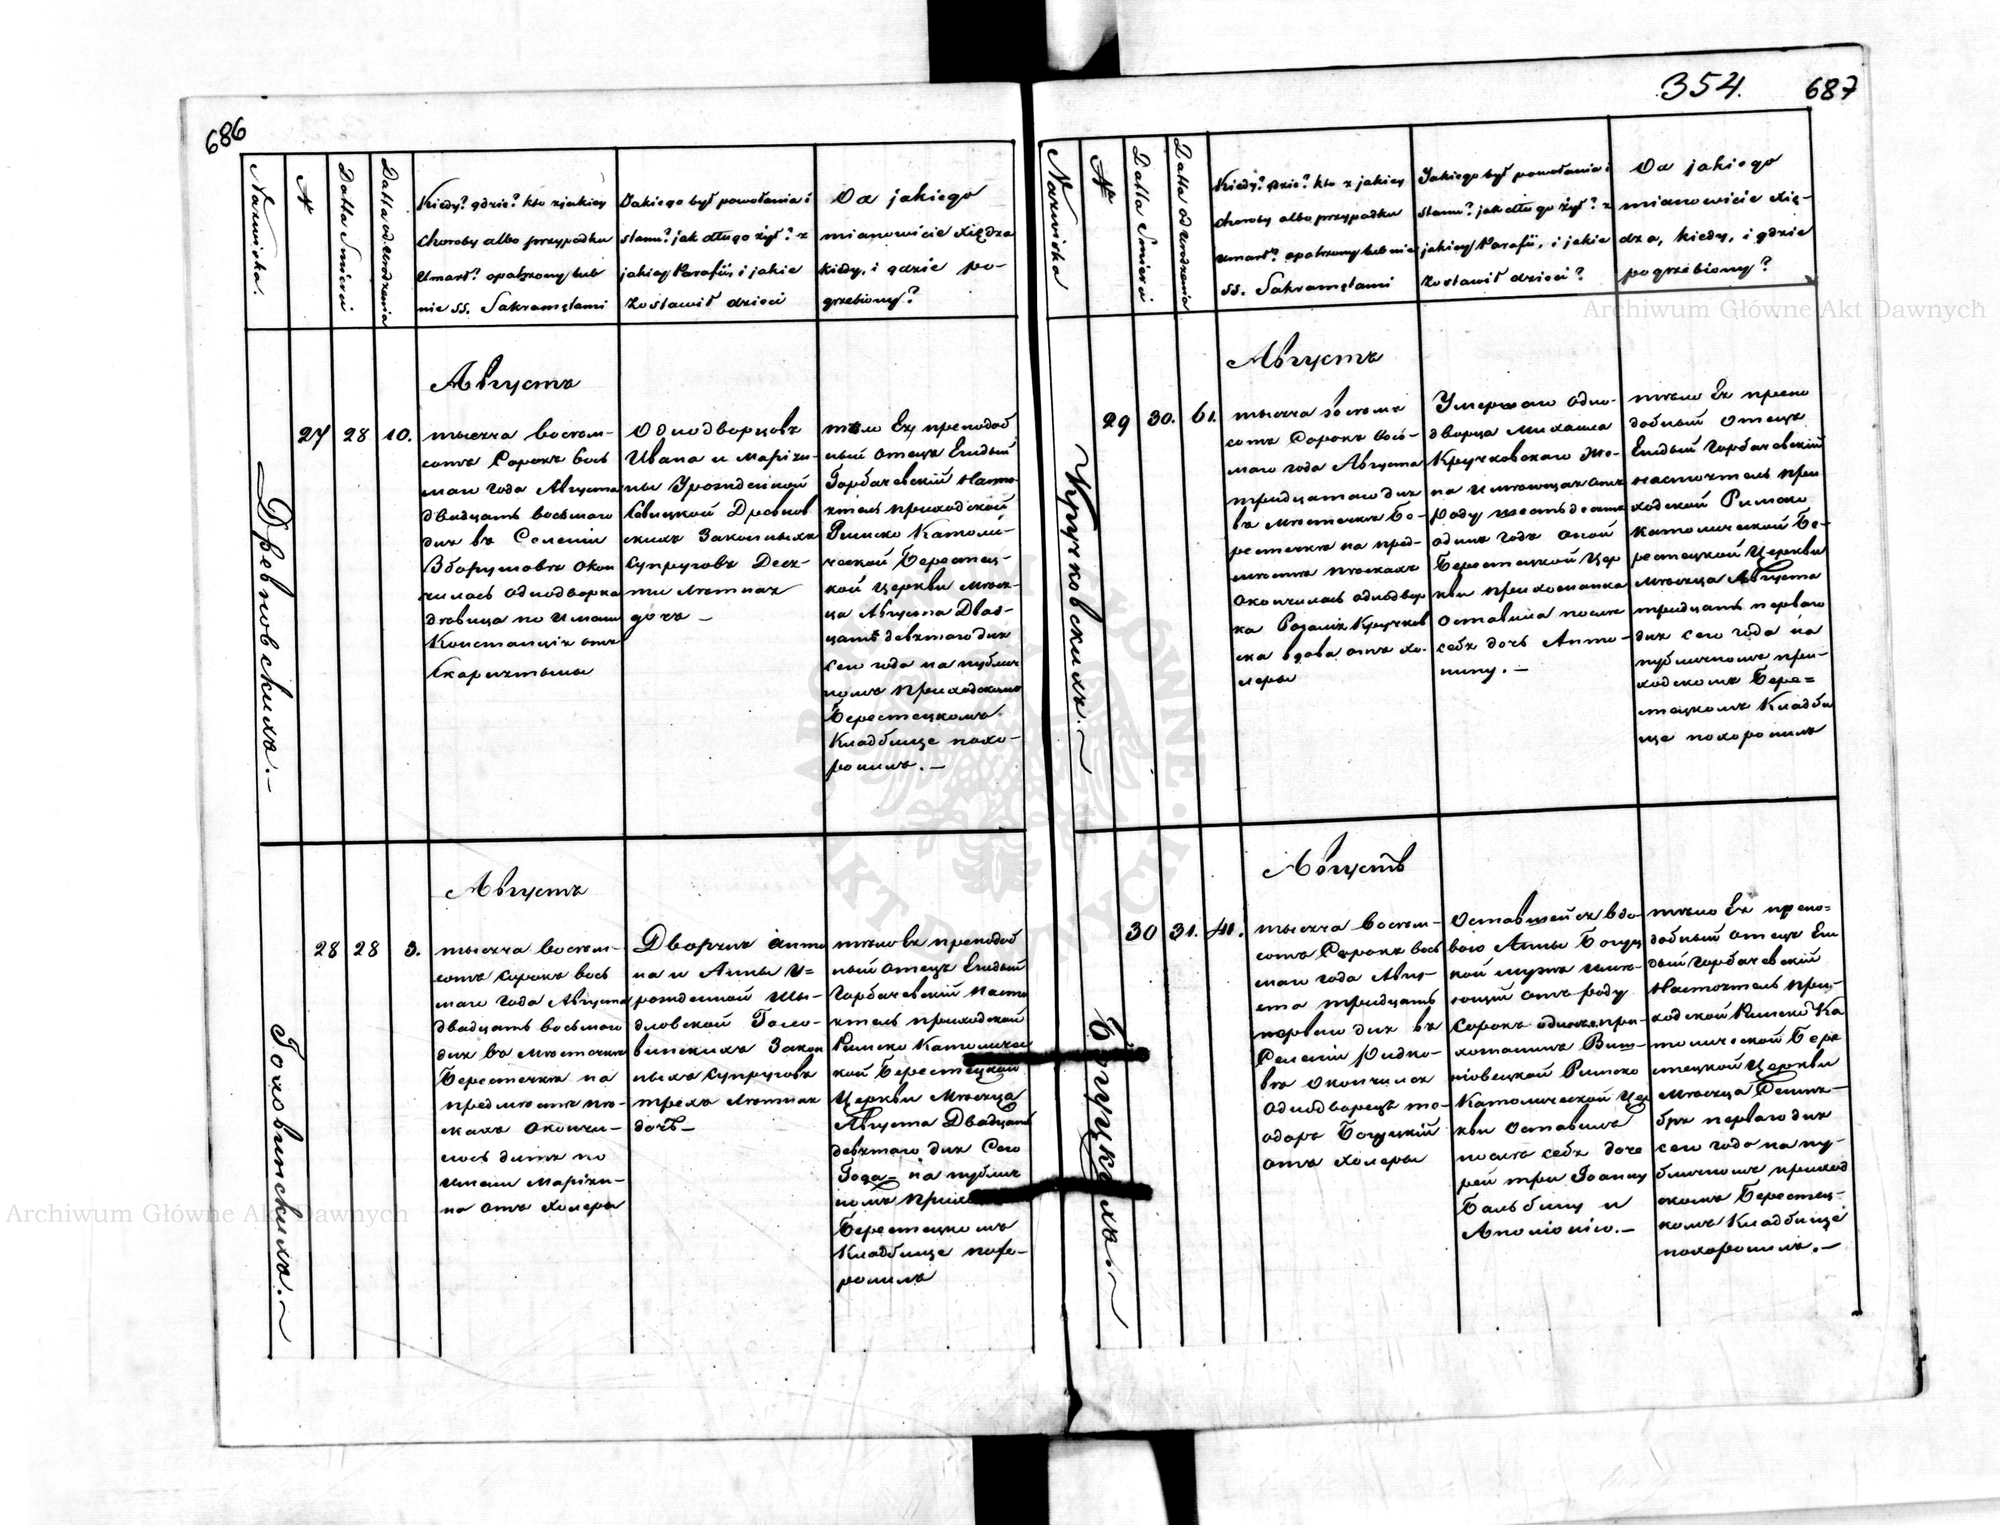 686
Nazwiska.
N
Datta Smierci
Datta od Urodzenia
Kiedy? gdzie? kto z jakiey
choroby albo przypadku
Umarł? opatrzony lub
nie SS. Sakramętami
Jakiego był powołania i
stanu? jak długo żył? z
jakiey Parafii, i jakie
Zostawił dzieci
Od jakiego
mianowicie Xiędza
kiedy, i gdzie po-
grzebiony?
Древновскихъ. —
27
28
10.
Августъ
тысяча восем-
сотъ Сорокъ вось
маго года Августа
двадцать восьмаго
дня въ Селеніи
Зборушовъ окон
чилась однодворка
дѣвица по имени
Констанція отъ
Скарлятыны
Однодворцовъ
Ивана и Маріан-
ны Урожденной
Древнов
скихъ Законныхъ
Супруговъ Деся-
ти лѣтняя
дочь —
тѣло Ея преподоб
ный отецъ Егидый
Горбачевскій Насто-
ятель приходской
Римско Католи-
ческой Берестец-
кой Церкви мѣся-
ца Августа Двад-
цать девятаго дня
сего года на публич
номъ приходскомъ
Берестецкомъ
Кладбище похо-
ронилъ. —
Головинскихъ. —
28
28
3.
Августъ
тысяча восем-
сотъ сорокъ вось
маго года Августа
двадцать восьмаго
дня въ мѣстечкѣ
Берестечкѣ на
предмѣстѣ пѣ-
скахъ окончи-
лось дитя по
имени Маріан-
на отъ холеры
Дворянъ Анто
на и Анны У=
рожденной Шы-
дловской Голо-
винскихъ Закон
ныхъ Супруговъ
трехъ лѣтняя
дочь —
тѣло Ея преподоб
ный отецъ Егидый
Горбачевскій Насто
ятель приходской
Римско Католичес
кой Берестецкой
Церкви Мѣсяца
Августа Двадцать
девятаго дня Сего
Года — на публич
номъ
Берестецкомъ
Кладбище похо-
ронилъ
354.
687
Nazwiska
N
Datta Smierci
Datta od Urodzenia
Kiedy? gdzie? kto z jakiey
choroby albo przypadku
umarł? opatrzony lub nie
SS. Sakramętami
Jakiego był powołania i
stanu? jak długo żył? z
jakiey Parafii, i jakie
Zostawił dzieci?
Od jakiego
mianowicie Xię-
dza, kiedy, i gdzie
pogrzebiony?
Archiwum Główne Akt Dawnych
Кручковскихъ. —
29
30.
61.
Августъ
тысяча восемъ
сотъ Сорокъ вось-
маго года Августа
тридцатаго дня
въ мѣстечкѣ Бе-
рестечкѣ на пред-
мѣстѣ пѣскахъ
окончилась однодвор
ка Розалія Кручков
ска вдова отъ хо-
леры
Умершаго одно-
дворца Михаила
Кручковскаго Же-
на имѣющая отъ
роду шестьдесятъ
одинъ годъ оной
Берестецкой Цер
кви прихожанка
оставила послѣ
себя дочь Анто-
нину. —
тѣло Ея препо
добный отецъ
Егидый Горбачевскій
настоятель при
ходской Римско
католической Бе-
рестецкой Церкви
мѣсяца Августа
тридцать перваго
дня сего года на
публичномъ при-
ходскомъ Бере=
стецкомъ Кладби
ще похоронилъ
30
31.
41.
Августъ
тысяча восем-
сотъ Сорокъ вось
маго года Авгу-
ста тридцать
перваго дня въ
Селеніи Ридко-
въ окончился
однодворецъ те-
одоръ Богуцкій
отъ холеры
Оставшейся вдо-
вою Анны Богуц
кой мужъ имѣ-
ющій отъ роду
Сорокъ одинъ при-
хожанинъ Виш-
нѣвецкой Римско
Католической Цер
кви оставилъ
послѣ себя доче
рей три Іоанну
Бальбину и
Аполонію. —
тѣло Ея препо=
добный отецъ Еги
дый Горбачевскій
Настоятель при-
ходской Римско Ка
толической Бере
стецкой Церкви
мѣсяца Сентя-
бря перваго дня
сего года на пу-
бличномъ приход
скомъ Берестец-
комъ Кладбищѣ
похоронилъ. —
Archiwum Główne Akt Dawnych